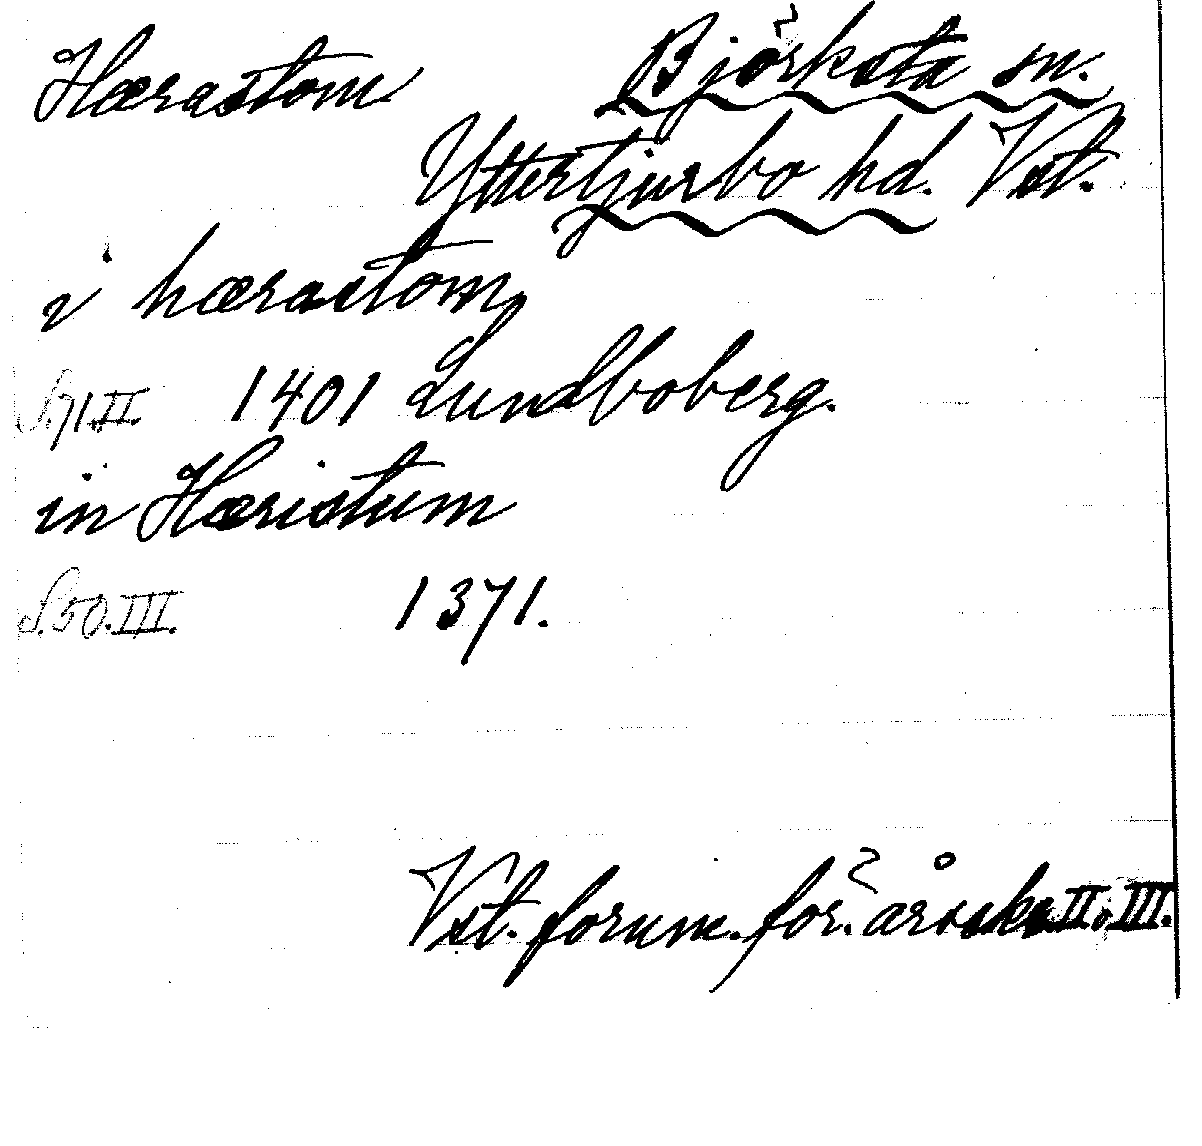 Hærastom Björksta sn.
Yttertjurbo hd. Vst.
i hærastom,
S. 71. II. 1401 Lundboberg.
in Hæristum
S. 50. III. 1371.
Vst. fornm. för. årsskr. II o III.